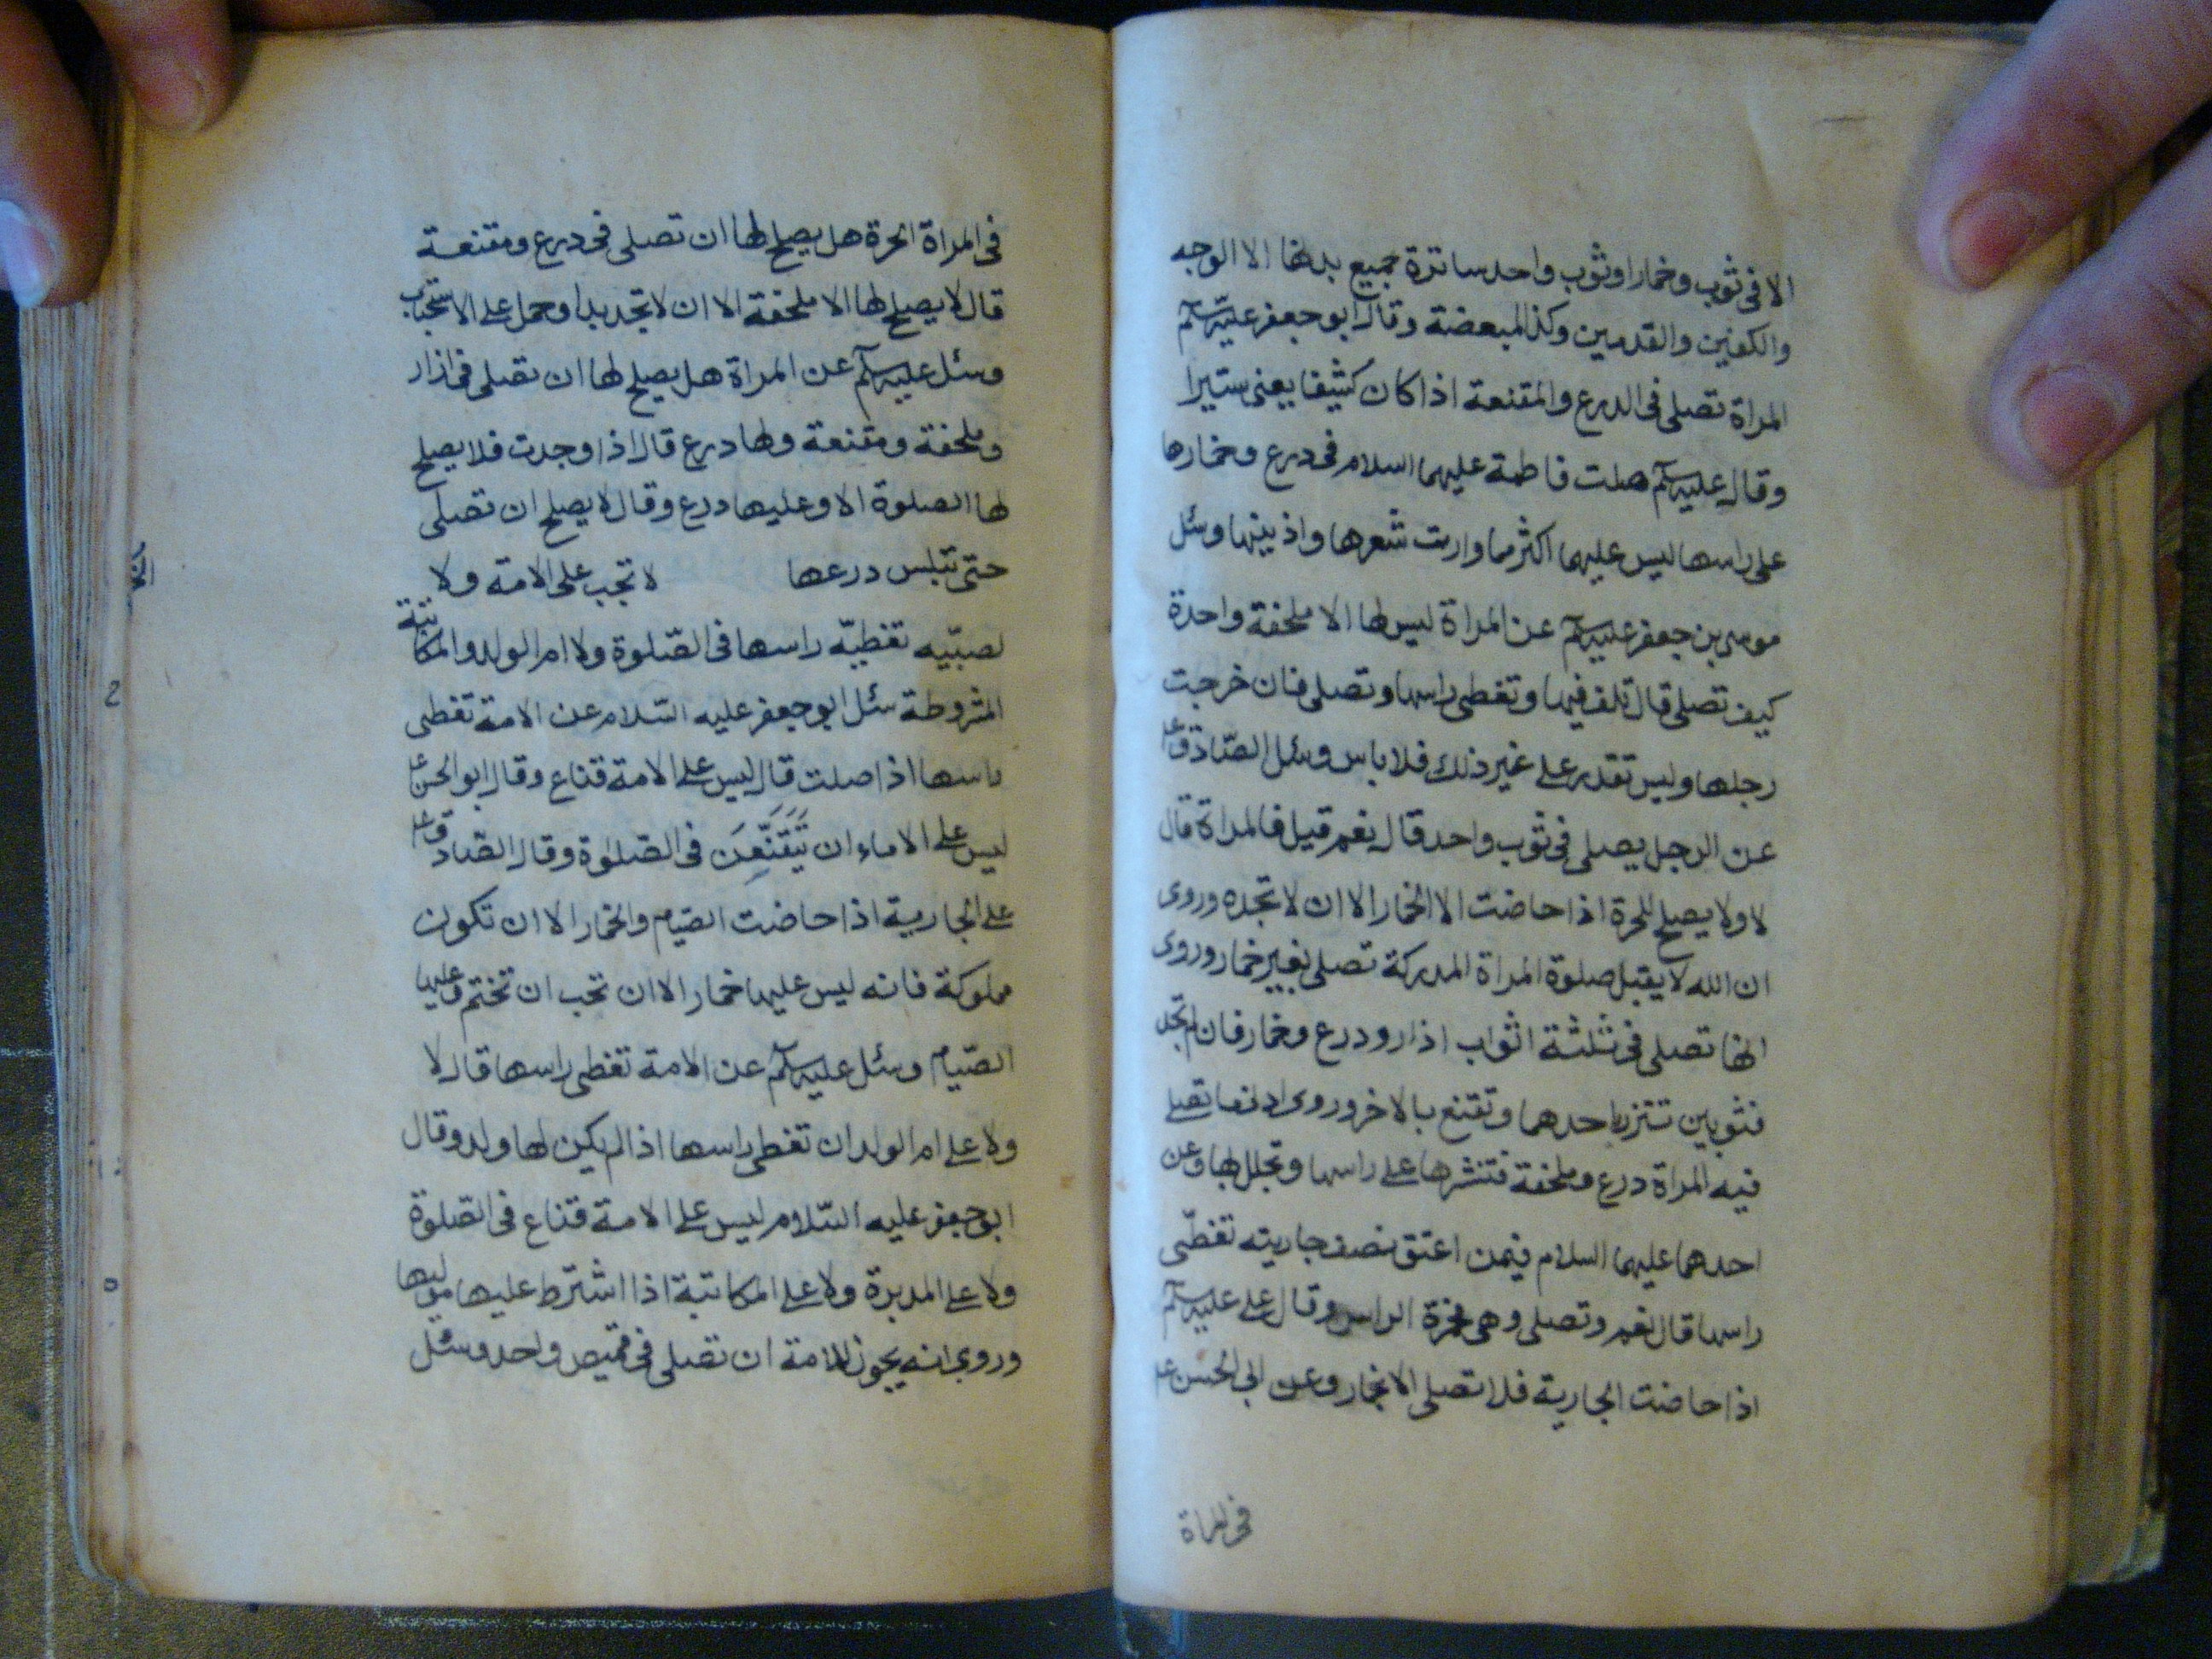 الا فى ثوب وخمار او ثوب واحد ساترة جميع بدنها الا الوجه
والكفين والقدمين وكذا المبعضة وقال ابو جعفر عليه السلم
المراة تصلى فى الدرع والمقنعة اذا كان كثيفا يعنى ستيرا
وقال عليه السلم صلت فاطمة عليها السلام فى درع وخمارها
على راسها ليس عليها اكثر مما وارت شعرها واذنيها وسئل
موسى بن جعفر عليه السلم عن المراة ليس لها الا ملحفة واحدة
كيف تصلى قال تلتف فيها وتغطى راسها وتصلى فان خرجت
رجلها وليس تقدر على غير ذلك فلا باس وسئل الصّادق ع
عن الرجل يصلى فى ثوب واحد قال نعم قيل فالمراة قال
لا ولا يصلح للحرة اذا حاضت الا الخمار الا ان لا تجده وروى
ان الله لا يقبل صلوة المراة المدركة تصلى بغير خمار وروى
انها تصلى فى ثلثة اثواب ازار ودرع وخمار فان لم تجد
فثوبين تتزر باحدهما وتقنع بالاخر وروى ادنى ما تصلى
فيه المراة درع وملحفة فتنشرها على راسها وتجلل بها وعن
احدهما عليهما السلام فيمن اعتق نصف جاريته تغطّى
راسها قال نعم وتصلى وهى مخمرة الراس وقال على عليه السلم
اذا حاضت الجارية فلا تصلى الا بخمار وعن ابى الحسن ع
فى المراة
فى المراة الحرة هل يصلح لها ان تصلى فى درع ومقنعة
قال لا يصلح لها الا ملحفة الا ان لا تجد بدا وحمل على الاستحباب
وسئل عليه السلم عن المراة هل يصلح لها ان تصلى فى ازار
وملحفة ومقنعة ولها درع قال اذا وجدت فلا يصلح
لها الصلوة الا وعليها درع وقال لا يصلح ان تصلى
حتى تلبس درعها لا تجب على الامة ولا
لصبيّه تغطيّه راسها فى الصّلوة ولا ام الولد والمكاتبة
المشروطة سئل ابو جعفر عليه السّلام عن الامة تغطى
راسها اذا صلت قال ليس على الامة قناع وقال ابو الحسن ع
ليس على الاماء ان يَتَقَنَّعنَ فى الصّلوة وقال الصّادق ع
على الجارية اذا حاضت الصّيام والخمار الا ان تكون
مملوكة فانه ليس عليها خمار الا ان تحب ان تختمر وعليها
الصّيام وسئل عليه السلم عن الامة تغطى راسها قال لا
ولا على ام الولد ان تغطى راسها اذا لم يكن لها ولد وقال
ابو جعفر عليه السّلام ليس على الامة قناع فى الصّلوة
ولا على المدبرة ولا على المكاتبة اذا اشترط عليها موليها
وروى انه يجوز للامة ان تصلى فى قميص واحد وسئل